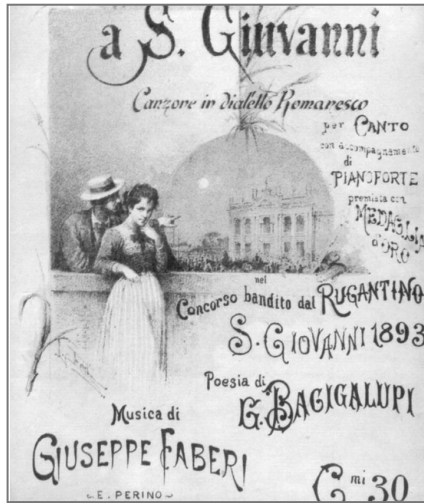 a S. Giuvanni
Canzone in dialetto Romanesco
per CANTO
con accompagnamento
di
PIANOFORTE
premiata con
MEDAGLIA
d'ORO
nel
Concorso bandito dal RUGANTINO
S. GIOVANNI 1893
Poesia di
G. BACIGALUPI
Musica di
GIUSEPPE FABERI
E. PERINO
C.mi 30